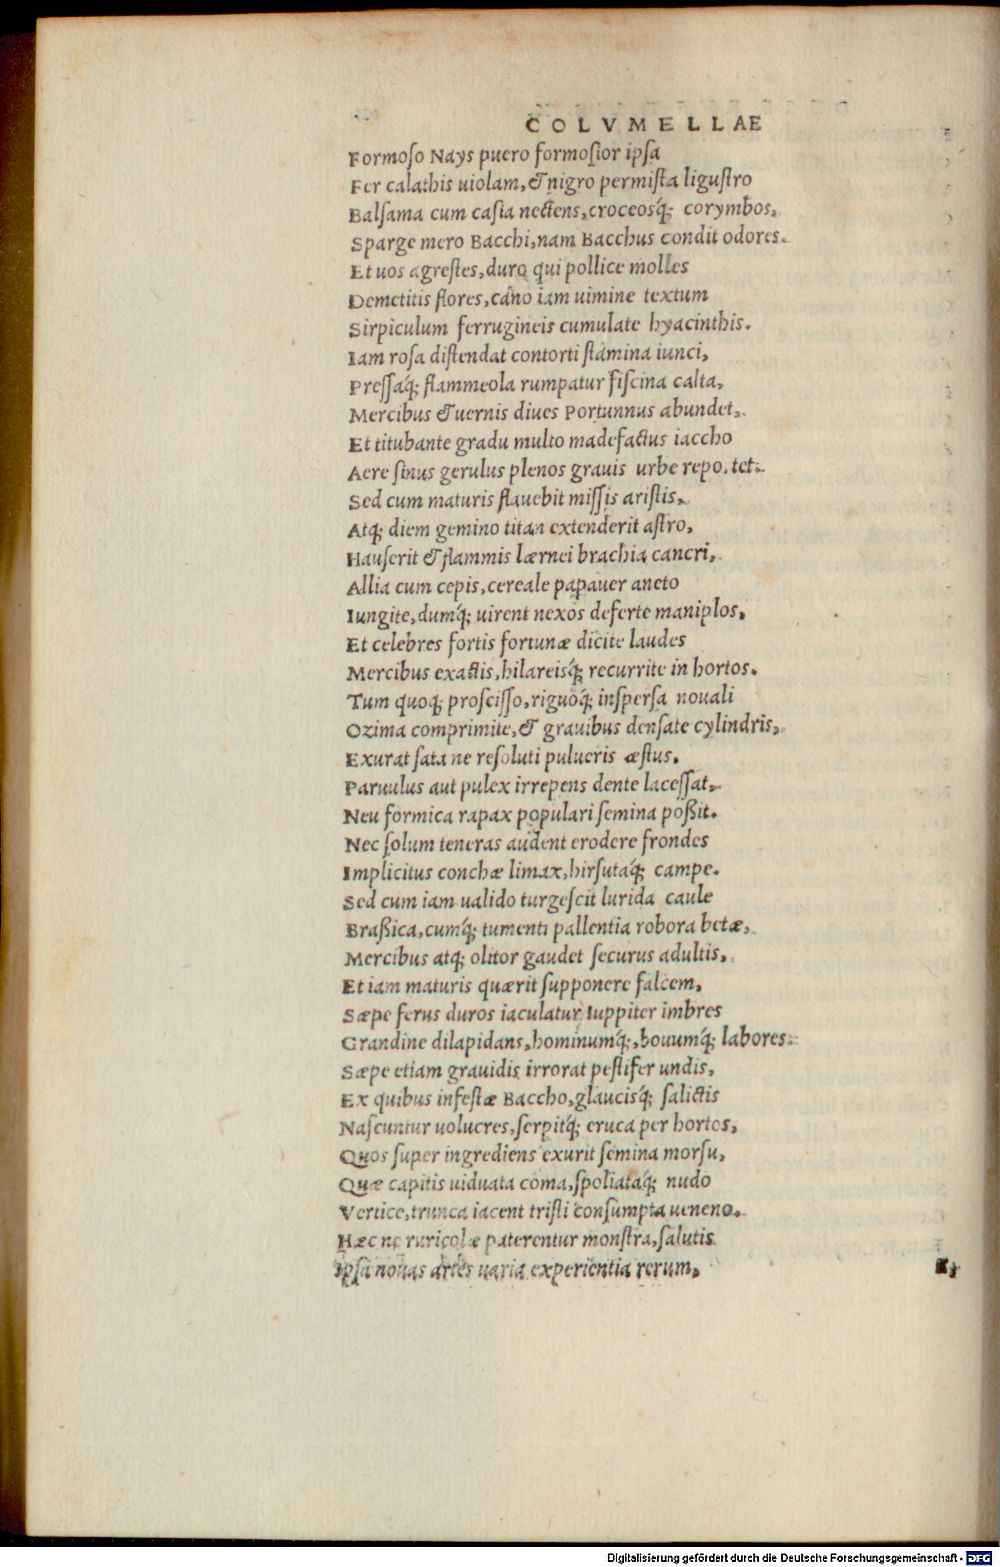 COLVMELLAE
Formoso Nays puero formosior ipsa
Fer calathis uiolam, & nigro permista ligustro
Balsama cum casia nectens, croceosq́; corymbos,
Sparge mero Bacchi, nam Bacchus condit odores.
Et uos agrestes, duro qui pollice molles
Demetitis flores, cano iam uimine textum
Sirpiculum ferrugineis cumulate hyacinthis.
Iam rosa distendat contorti stamina iunci,
Pressaq́; flammeola rumpatur fiscina calta,
Mercibus & uernis diues Portunnus abundet,
Et titubante gradu multo madefactus iaccho
Aere sinus gerulus plenos grauis urbe repo. tet.
Sed cum maturis flauebit missis aristis,
Atq; diem gemino titan extenderit astro,
Hauserit & flammis lærnei brachia cancri,
Allia cum cepis, cereale papauer aneto
Iungite, dumq́; uirent nexos deferte maniplos,
Et celebres fortis fortunæ dicite laudes
Mercibus exactis, hilareisq́; recurrite in hortos.
Tum quoq; proscisso, riguoq́; inspersa nouali
Ozima comprimite, & grauibus densate cylindris,
Exurat sata ne resoluti pulueris æstus,
Paruulus aut pulex irrepens dente lacessat,
Neu formica rapax populari semina poßit.
Nec solum teneras audent erodere frondes
Implicitus conchæ limax, hirsutaq́; campe.
Sed cum iam ualido turgescit lurida caule
Braßica, cumq́; tumenti pallentia robora betæ,
Mercibus atq; olitor gaudet securus adultis,
Et iam maturis quærit supponere falcem,
Sæpe ferus duros iaculatur Iuppiter imbres
Grandine dilapidans, hominumq́;, bouumq́; labores.
Sæpe etiam grauidis irrorat pestifer undis,
Ex quibus infestæ Baccho, glaucisq́; salictis
Nascuntur uolucres, serpitq́; eruca per hortos,
Quos super ingrediens exurit semina morsu,
Quæ capitis uiduata coma, spoliataq́; nudo
Vertice, trunca iacent tristi consumpta ueneno.
Hæc ne ruricolæ paterentur monstra, salutis
Ipsa nouas artes uaria experientia rerum,
Digitalisierung gefördert durch die Deutsche Forschungsgemeinschaft - DFG